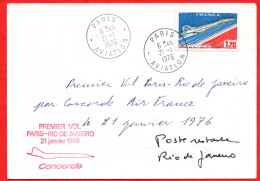 PARIS
AVIATION
21-1
1976
PARIS
AVIATION
21-1
1976
FRANCE
1,70
Premier Vol Paris-Rio de Janeiro
par Concorde Air France
le 21 janvier 1976
PREMIER VOL
PARIS-RIO DE JANEIRO
21 janvier 1976
Concorde
Poste restante
Rio de Janeiro